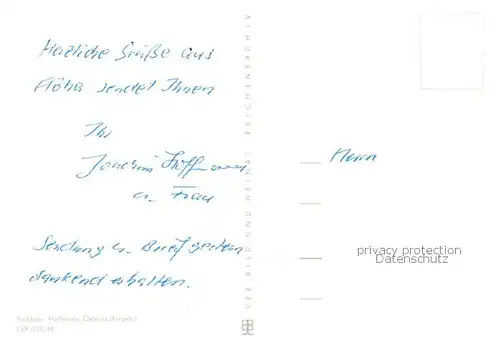 Herzliche Grüße aus
Flöha sendet Ihnen
Ihr
Joachim Hoffmann
u. Frau
Sendung u. Brief gestern
dankend erhalten.
VEB BILD UND HEIMAT REICHENBACH I.V.
Herrn
privacy protection
Datenschutz